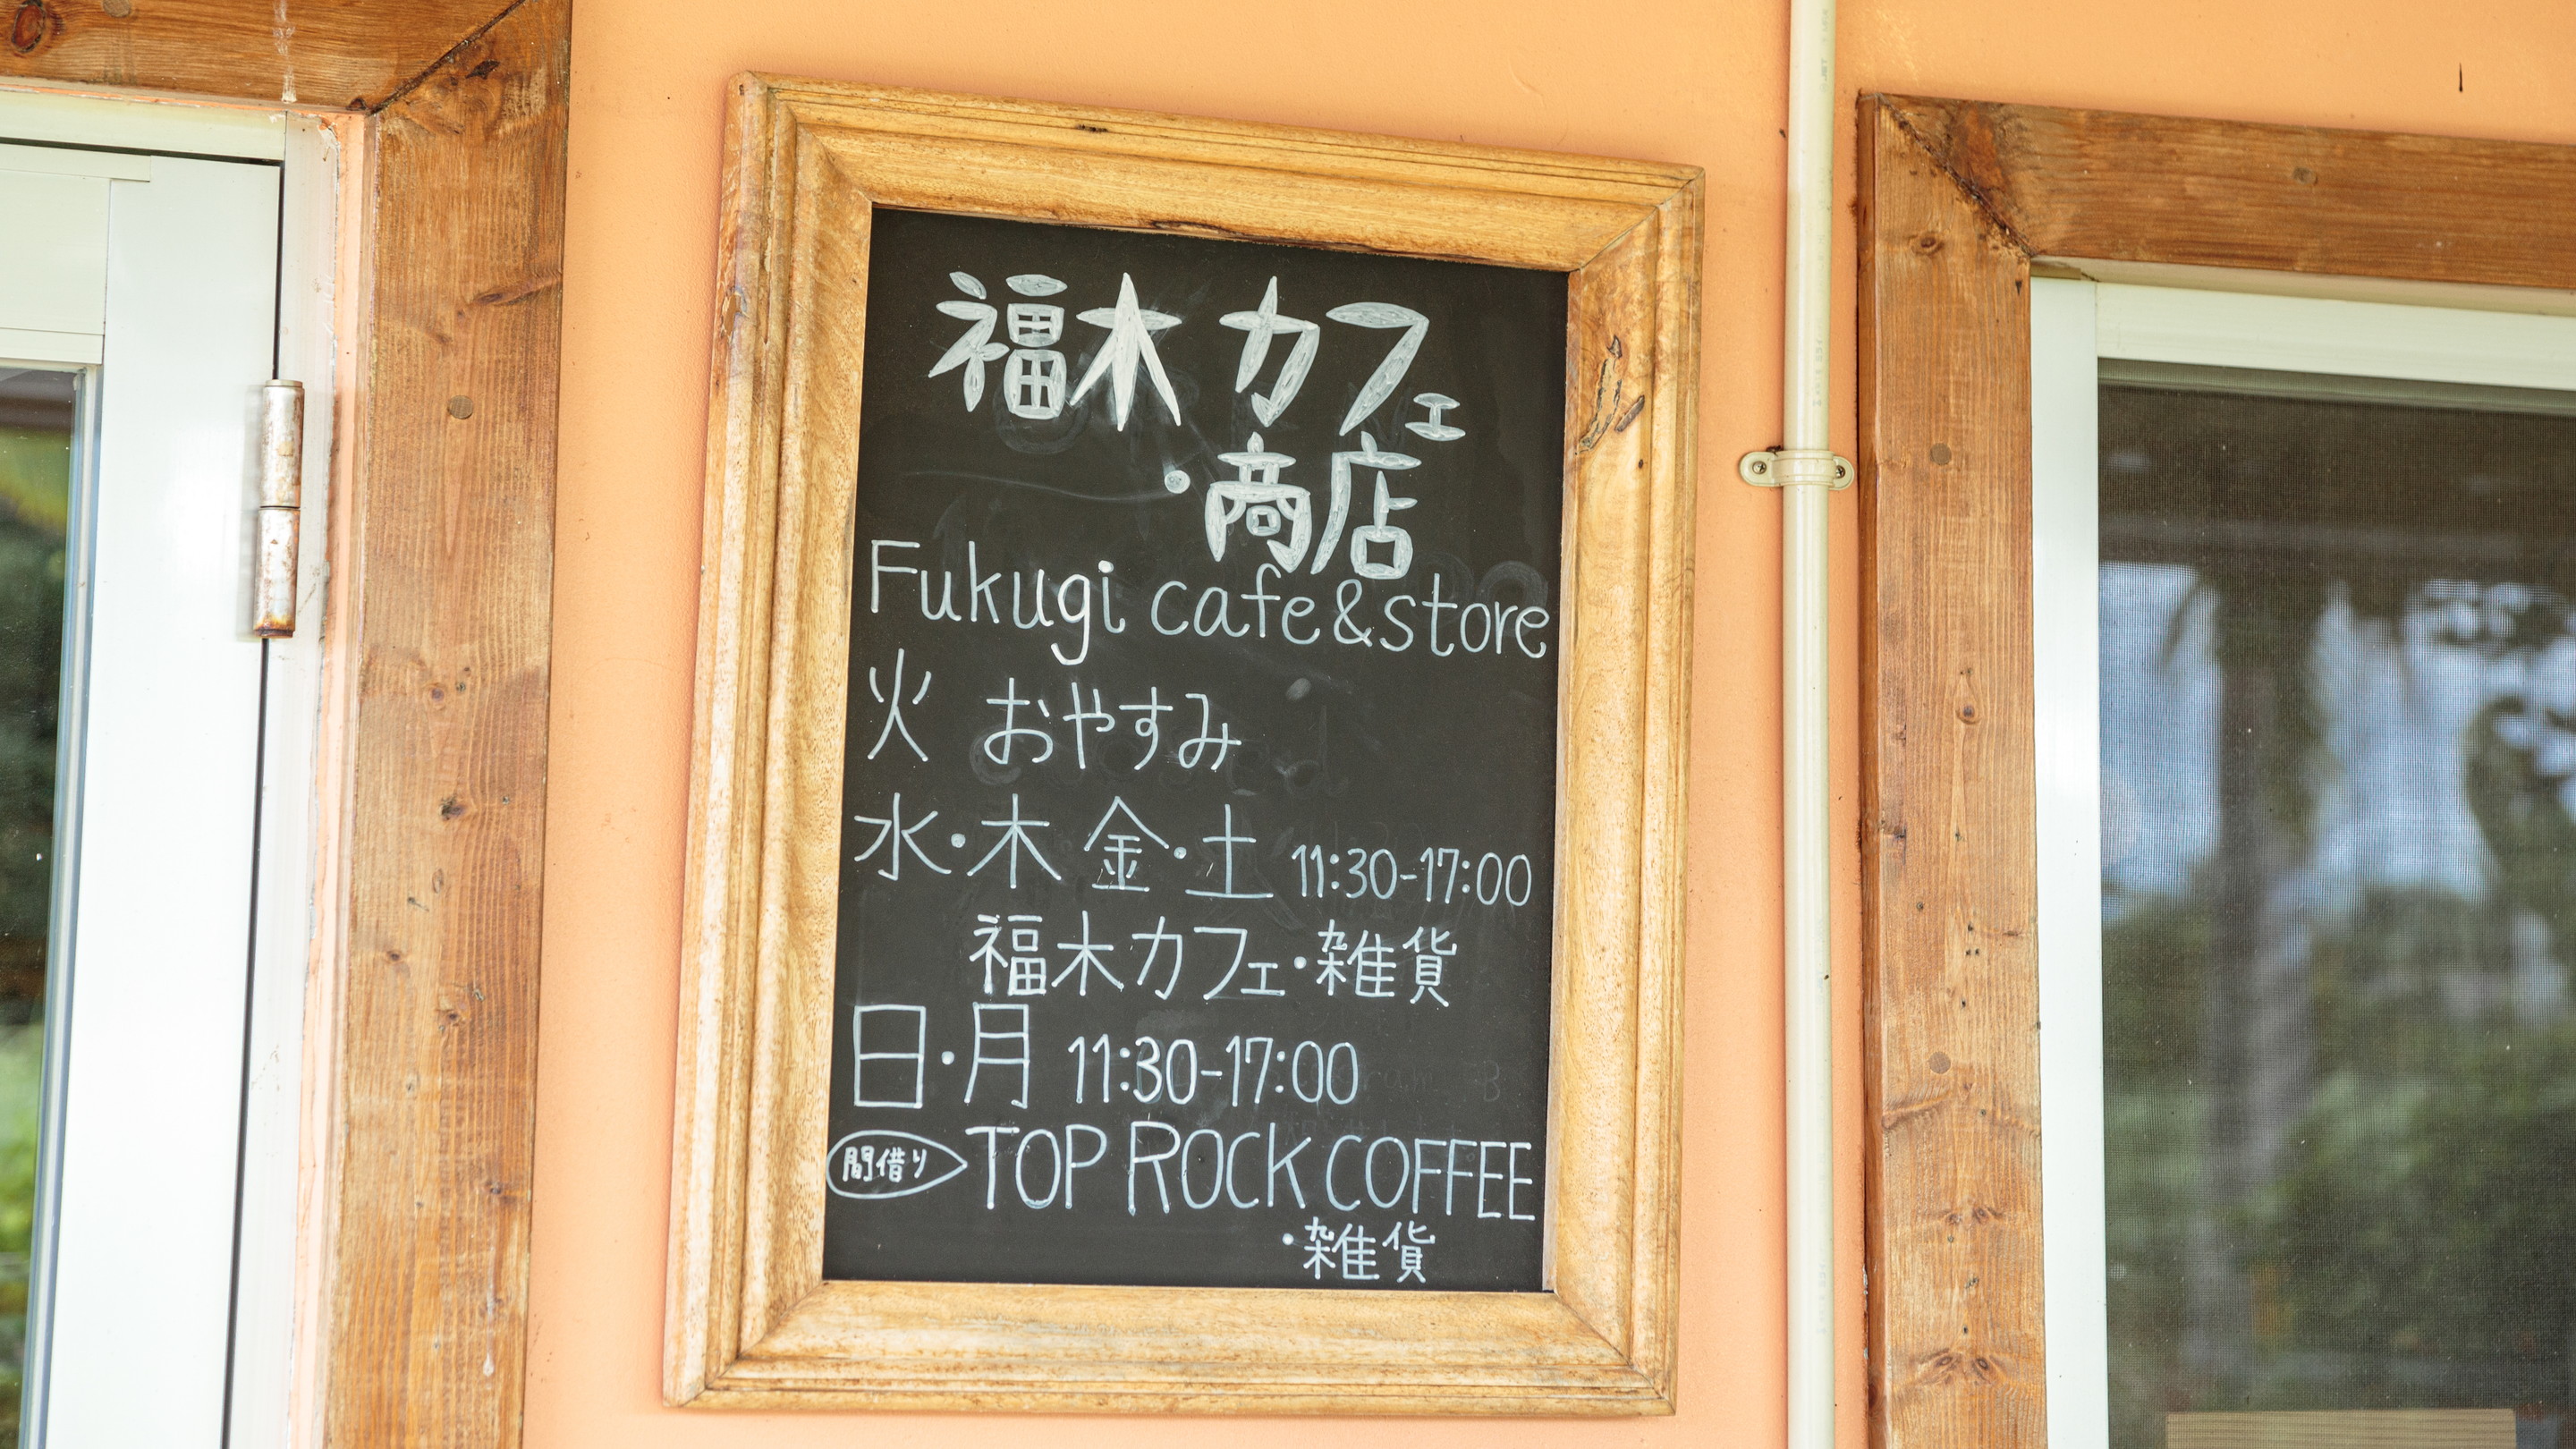 福木カフェ
・商店
Fukugi cafe&store
火 おやすみ
水・木 金・土 11:30-17:00
福木カフェ・雑貨
日・月 11:30-17:00
間借り TOP ROCK COFFEE
・雑貨